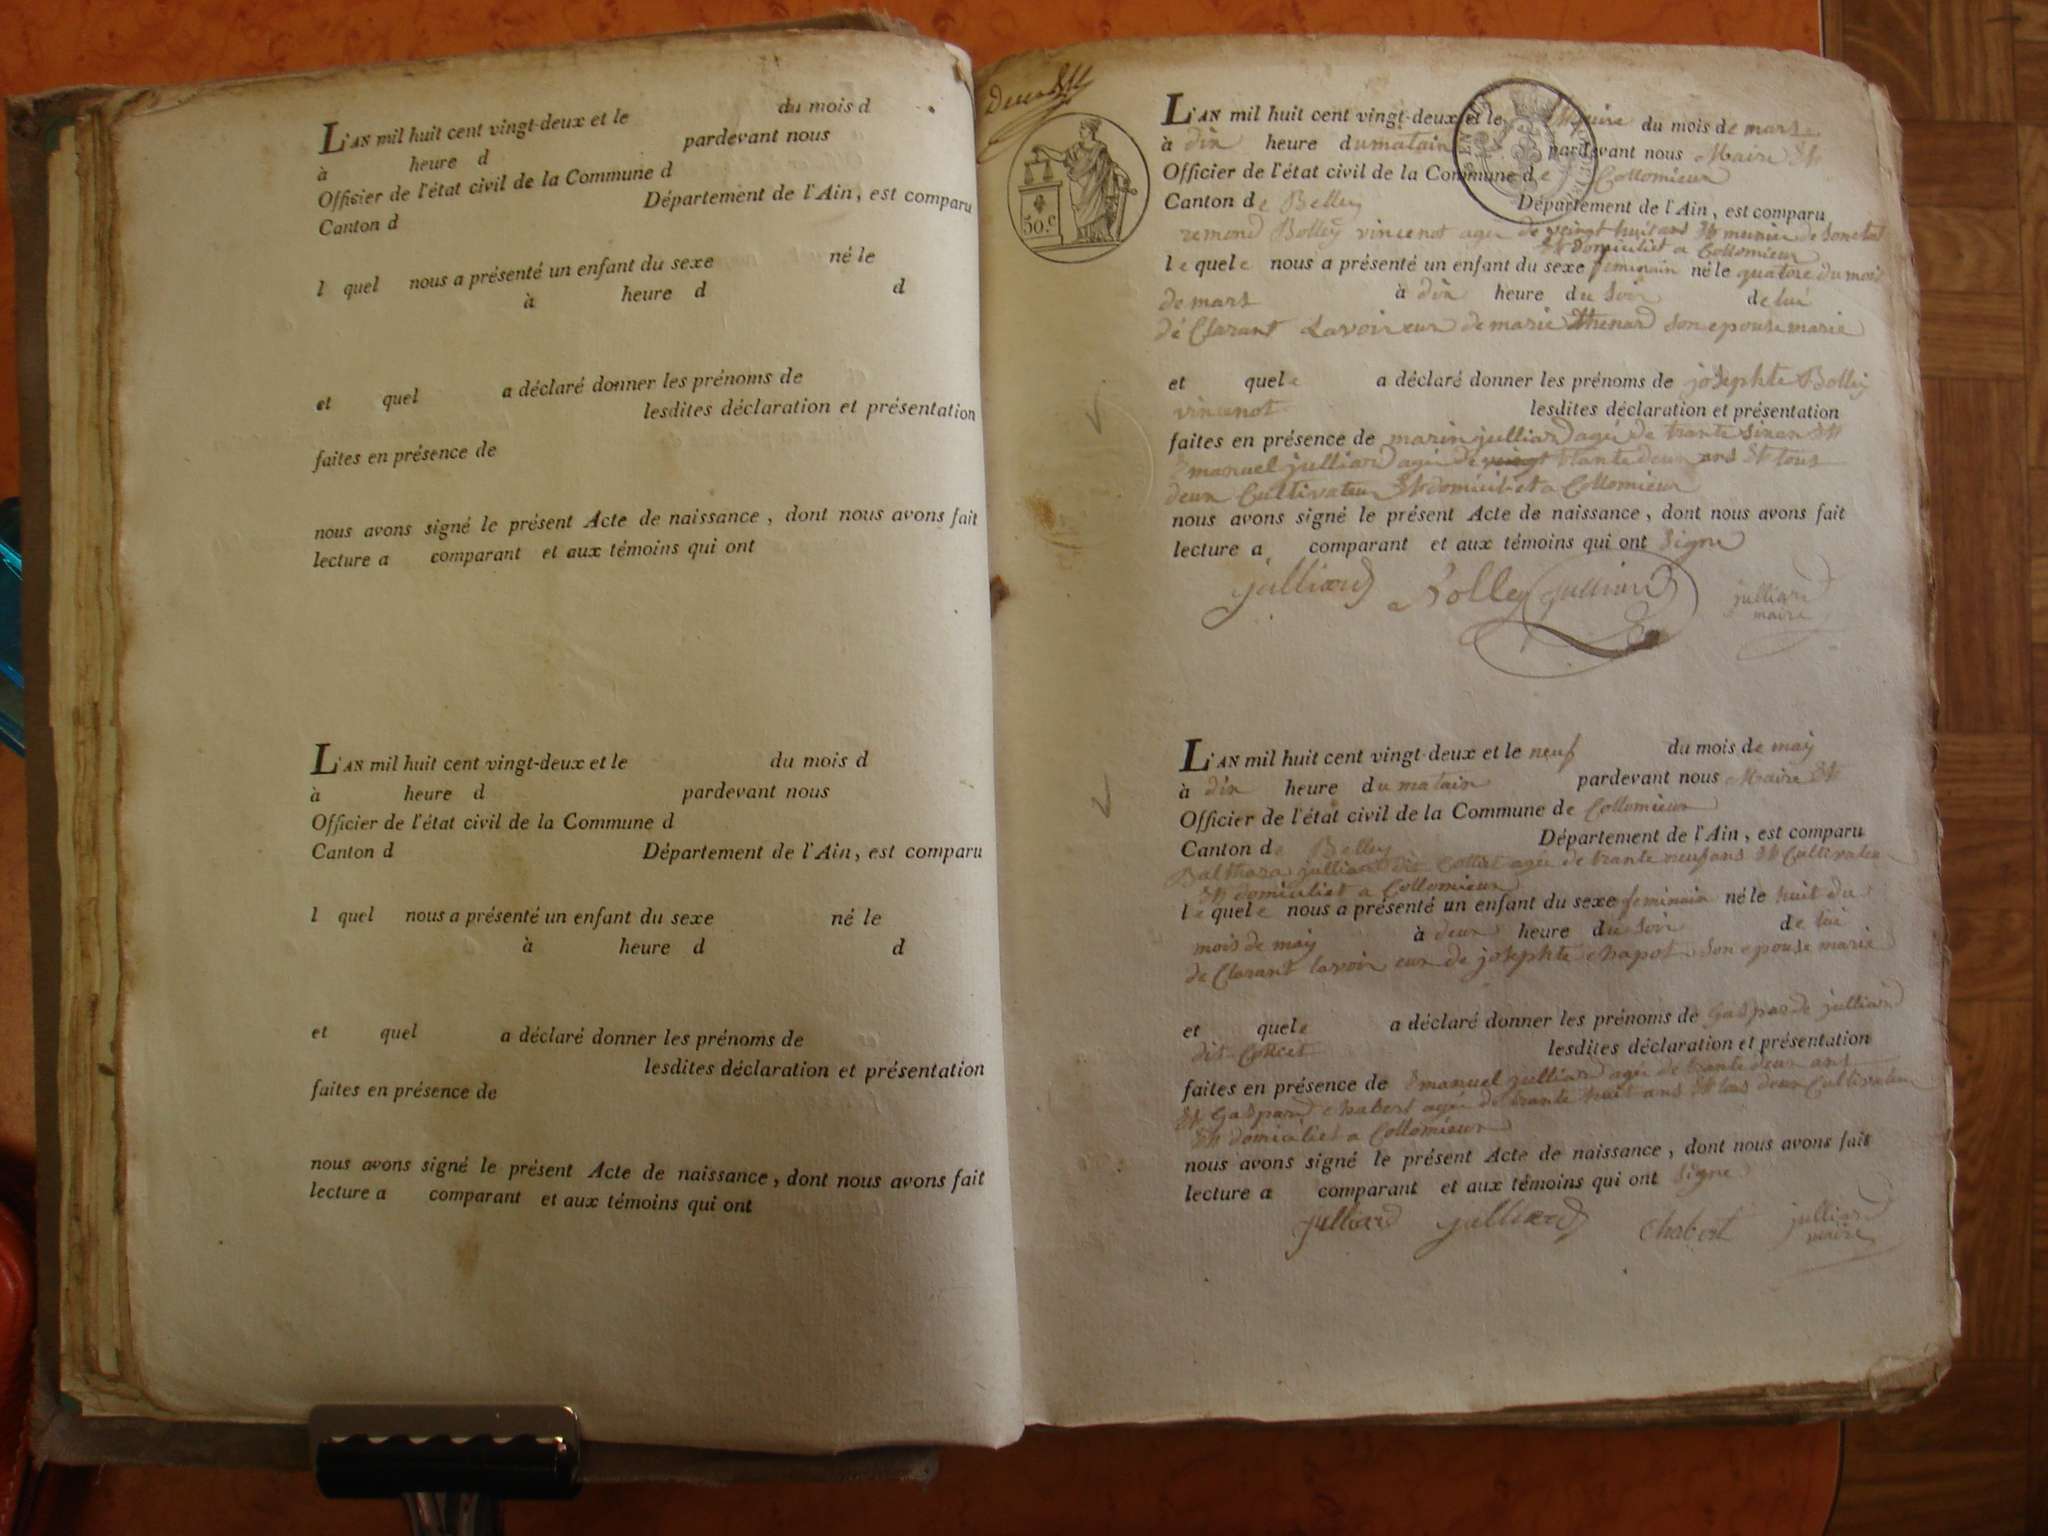 L'AN mil huit cent vingt-deux et le du mois d
à heure d pardevant nous
Officier de l'état civil de la Commune d
Canton d Département de l'Ain, est comparu
l quel nous a présenté un enfant du sexe né le
à heure d d
et quel a déclaré donner les prénoms de
lesdites déclaration et présentation
faites en présence de
nous avons signé le présent Acte de naissance, dont nous avons fait
lecture a comparant et aux témoins qui ont
L'AN mil huit cent vingt-deux et le du mois d
à heure d pardevant nous
Officier de l'état civil de la Commune d
Canton d Département de l'Ain, est comparu
l quel nous a présenté un enfant du sexe né le
à heure d d
et quel a déclaré donner les prénoms de
lesdites déclaration et présentation
faites en présence de
nous avons signé le présent Acte de naissance, dont nous avons fait
lecture a comparant et aux témoins qui ont
50.c
L'AN mil huit cent vingt-deux et le du mois de mars
à dix heure du matain pardevant nous Maire et
Officier de l'état civil de la Commune de Collomieux
Canton de Belley Département de l'Ain, est comparu
remond Bolley vincenot agee de veingt huit ans et munie de son etat
et domiciliet a Collomieux
le quele nous a présenté un enfant du sexe feminain né le quatore du mois
de mars à dix heure du soir de lui
dé Clarant Lavoir eux de marie thenard son epouse marie
et quele a déclaré donner les prénoms de josephte Bolley
vincenot lesdites déclaration et présentation
faites en présence de marin julliard agée de trante six an et
Emanuel julliard agée de veingt trante deux ans et tous
deux Cultivateur et domiciliet a Collomieux
nous avons signé le présent Acte de naissance, dont nous avons fait
lecture a comparant et aux témoins qui ont signe
julliard Bolley julliard julliard
maire
L'AN mil huit cent vingt-deux et le neuf du mois de may
à dix heure du matain pardevant nous Maire et
Officier de l'état civil de la Commune de Collomieux
Canton de Belley Département de l'Ain, est comparu
Balthaza julliard dit Collet agée de trante neuf ans et Cultivateur
et domiciliet a Collomieux
le quele nous a présenté un enfant du sexe feminain né le huit du
mois de may à deux heure du soir de lui
de Clarant lavoir eux de josephte chapot son epouse marie
et quele a déclaré donner les prénoms de Gasparde julliard
dit Collet lesdites déclaration et présentation
faites en présence de Emanuel julliard agée de trante deux ans
et Gaspard chabert agée de trante huit ans et tous deux Cultivateur
et domiciliet a Collomieux
nous avons signé le présent Acte de naissance, dont nous avons fait
lecture a comparant et aux témoins qui ont signe
julliard julliard chabert julliard
maire